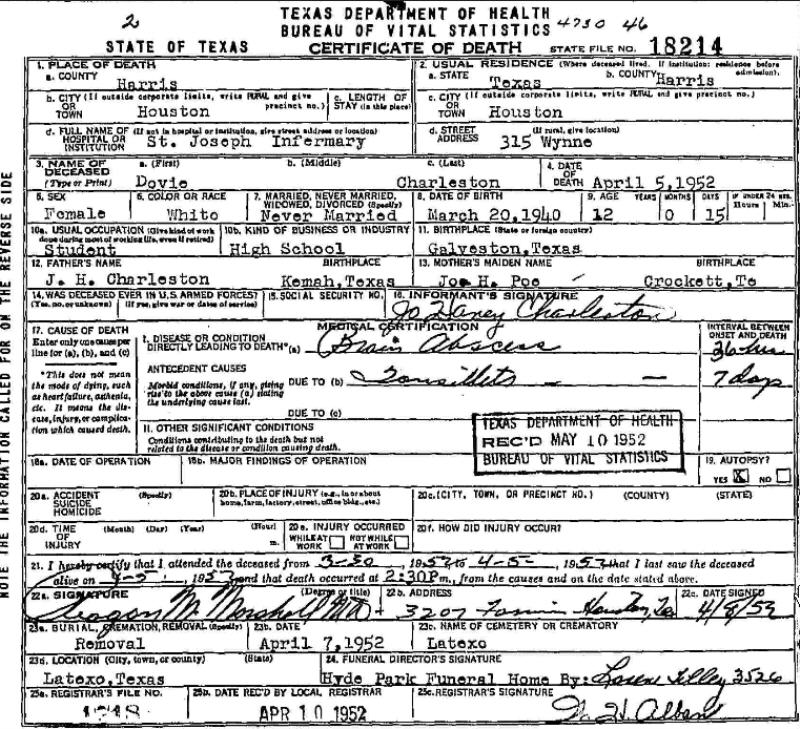 2
TEXAS DEPARTMENT OF HEALTH
BUREAU OF VITAL STATISTICS 4730 46
STATE OF TEXAS CERTIFICATE OF DEATH STATE FILE NO. 18214
1. PLACE OF DEATH
a. COUNTY Harris
2. USUAL RESIDENCE (Where deceased lived. If institution: residence before admission).
a. STATE Texas b. COUNTY Harris
b. CITY (If outside corporate limits, write RURAL and give precinct no.) OR TOWN Houston
c. LENGTH OF STAY (in this place)
c. CITY (If outside corporate limits, write RURAL and give precinct no.) OR TOWN Houston
d. FULL NAME OF (If not in hospital or institution, give street address or location) HOSPITAL OR INSTITUTION St. Joseph Infermary
d. STREET ADDRESS (If rural, give location) 315 Wynne
3. NAME OF DECEASED (Type or Print) a. (First) Dovie b. (Middle) c. (Last) Charleston
4. DATE OF DEATH April 5,1952
5. SEX Female
6. COLOR OR RACE White
7. MARRIED, NEVER MARRIED, WIDOWED, DIVORCED (Specify) Never Married
8. DATE OF BIRTH March 20,1940
9. AGE YEARS 12 MONTHS 0 DAYS 15 IF UNDER 24 HRS. Hours Min.
10a. USUAL OCCUPATION (Give kind of work done during most of working life, even if retired) Student
10b. KIND OF BUSINESS OR INDUSTRY High School
11. BIRTHPLACE (State or foreign country) Galveston,Texas
12. FATHER'S NAME J. H. Charleston BIRTHPLACE Kemah,Texas
13. MOTHER'S MAIDEN NAME Joe H. Poe BIRTHPLACE Crockett,Te
14. WAS DECEASED EVER IN U.S. ARMED FORCES? (Yes, no, or unknown) (If yes, give war or dates of service)
15. SOCIAL SECURITY NO.
16. INFORMANT'S SIGNATURE Charleston
17. CAUSE OF DEATH
Enter only one cause per line for (a), (b), and (c)
*This does not mean the mode of dying, such as heart failure, asthenia, etc. It means the disease, injury, or complication which caused death.
MEDICAL CERTIFICATION
INTERVAL BETWEEN ONSET AND DEATH
I. DISEASE OR CONDITION DIRECTLY LEADING TO DEATH* (a) Brain Abscess 36 hrs
ANTECEDENT CAUSES
Morbid conditions, if any, giving rise to the above cause (a) stating the underlying cause last.
DUE TO (b) 7 days
DUE TO (c)
II. OTHER SIGNIFICANT CONDITIONS
Conditions contributing to the death but not related to the disease or condition causing death.
TEXAS DEPARTMENT OF HEALTH
REC'D MAY 10 1952
BUREAU OF VITAL STATISTICS
18a. DATE OF OPERATION
18b. MAJOR FINDINGS OF OPERATION
19. AUTOPSY?
YES X NO
20a. ACCIDENT SUICIDE HOMICIDE (Specify)
20b. PLACE OF INJURY (e.g., in or about home, farm, factory, street, office bldg., etc.)
20c. (CITY, TOWN, OR PRECINCT NO.) (COUNTY) (STATE)
20d. TIME OF INJURY (Month) (Day) (Year) (Hour) m.
20e. INJURY OCCURRED WHILE AT WORK NOT WHILE AT WORK
20f. HOW DID INJURY OCCUR?
21. I hereby certify that I attended the deceased from 3-30, 1952 to 4-5-, 1952 that I last saw the deceased
alive on 4-5-, 1952 and that death occurred at 2:30P m., from the causes and on the date stated above.
22a. SIGNATURE (Degree or title)
22b. ADDRESS 3207 Houston,
22c. DATE SIGNED
23a. BURIAL, CREMATION, REMOVAL (Specify) Removal
23b. DATE April 7,1952
23c. NAME OF CEMETERY OR CREMATORY Latexo
23d. LOCATION (City, town, or county) (State) Latexo,Texas
24. FUNERAL DIRECTOR'S SIGNATURE Hyde Park Funeral Home By: 3526
25a. REGISTRAR'S FILE NO.
25b. DATE REC'D BY LOCAL REGISTRAR APR 10 1952
25c. REGISTRAR'S SIGNATURE
NOTE THE INFORMATION CALLED FOR ON THE REVERSE SIDE